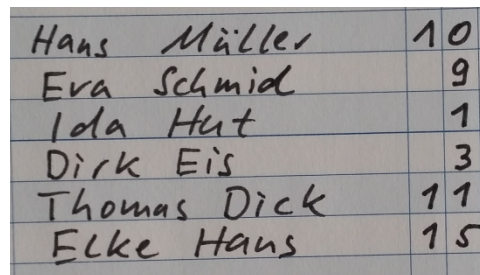 Hans Müller 10
Eva Schmid 9
Ida Hut 1
Dirk Eis 3
Thomas Dick 11
Elke Hans 15